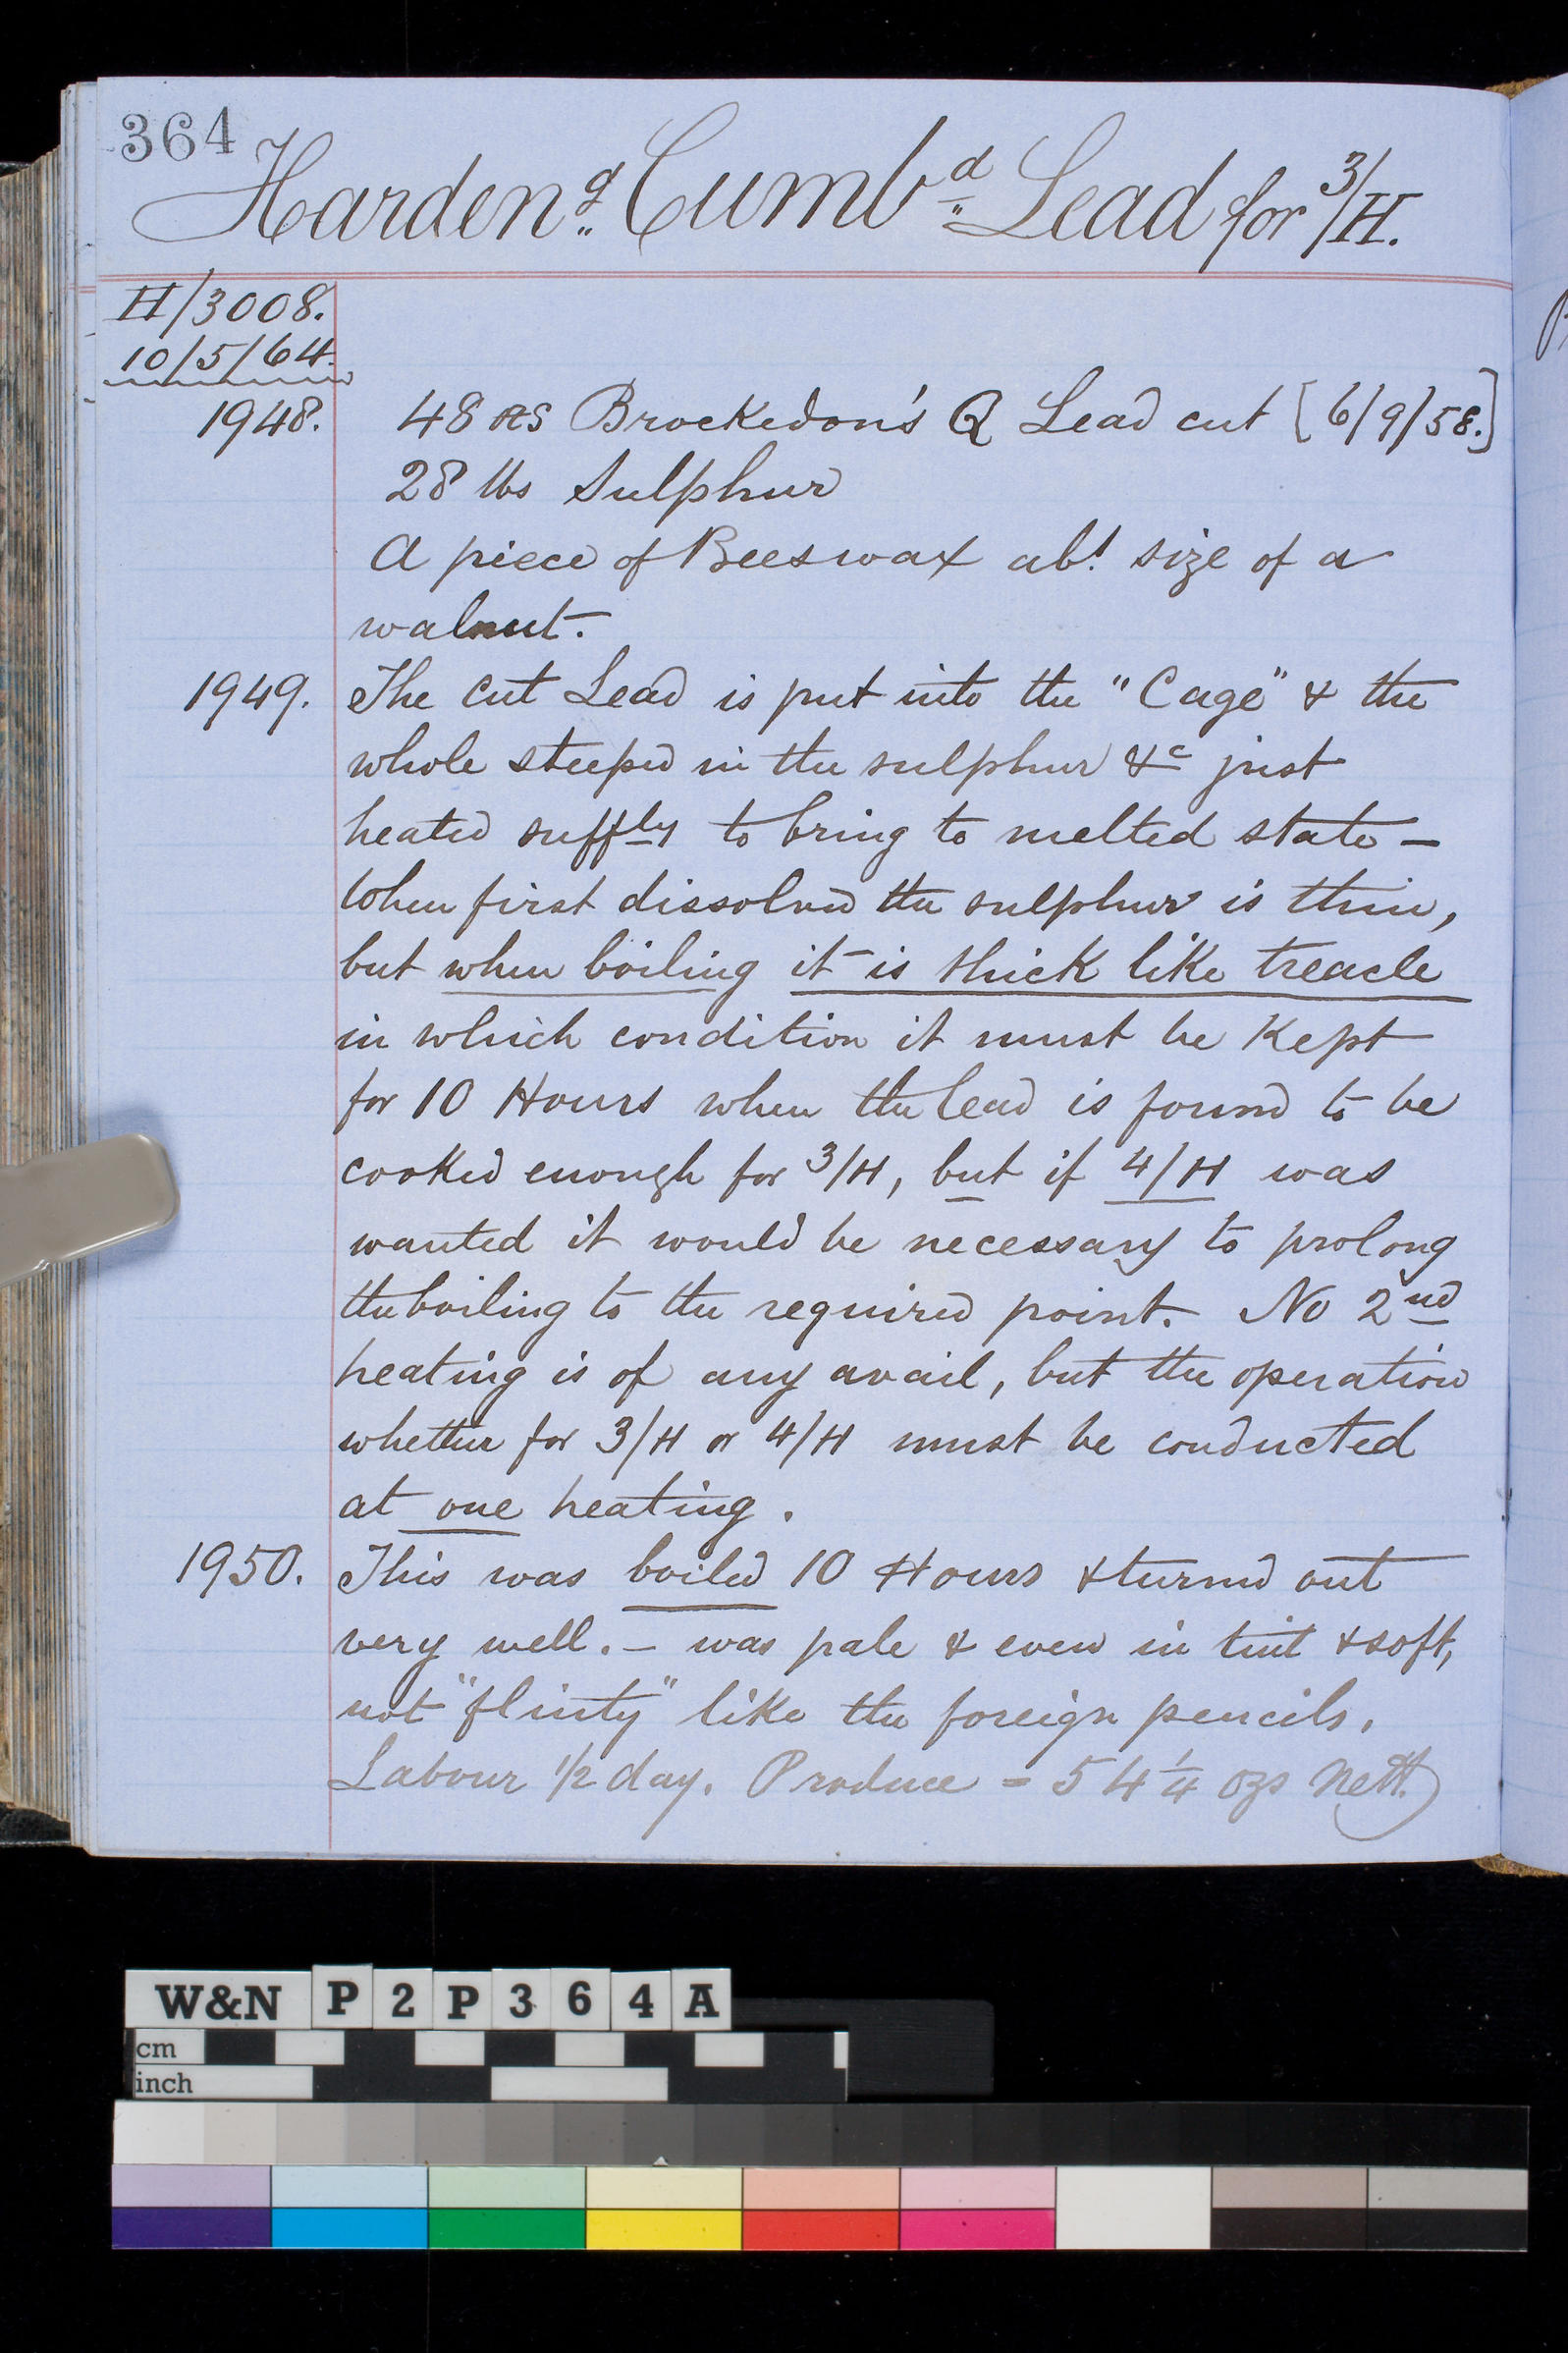 364
Hardeng. Cumbd. Lead for 3/H.
H/3008.
10/5/64.
1948. 48 ozs Brockedon's Q Lead cut [6/9/58.]
28 lbs Sulphur
A piece of Beeswax abt. size of a
walnut.
1949. The cut Lead is put into the "Cage" & the
whole steeped in the sulphur &c just
heated suffly to bring to melted state –
When first dissolved the sulphur is thin,
but when boiling it is thick like treacle
in which condition it must be kept
for 10 Hours when the lead is found to be
cooked enough for 3/H, but if 4/H was
wanted it would be necessary to prolong
the boiling to the required point. No 2nd
heating is of any avail, but the operation
whether for 3/H or 4/H must be conducted
at one heating.
1950. This was boiled 10 Hours & turned out
very well. – was pale & even in tint & soft,
not "flinty" like the foreign pencils.
Labour 1/2 day. Produce = 54 1/4 ozs Nett.
W&N P2P364A
cm
inch